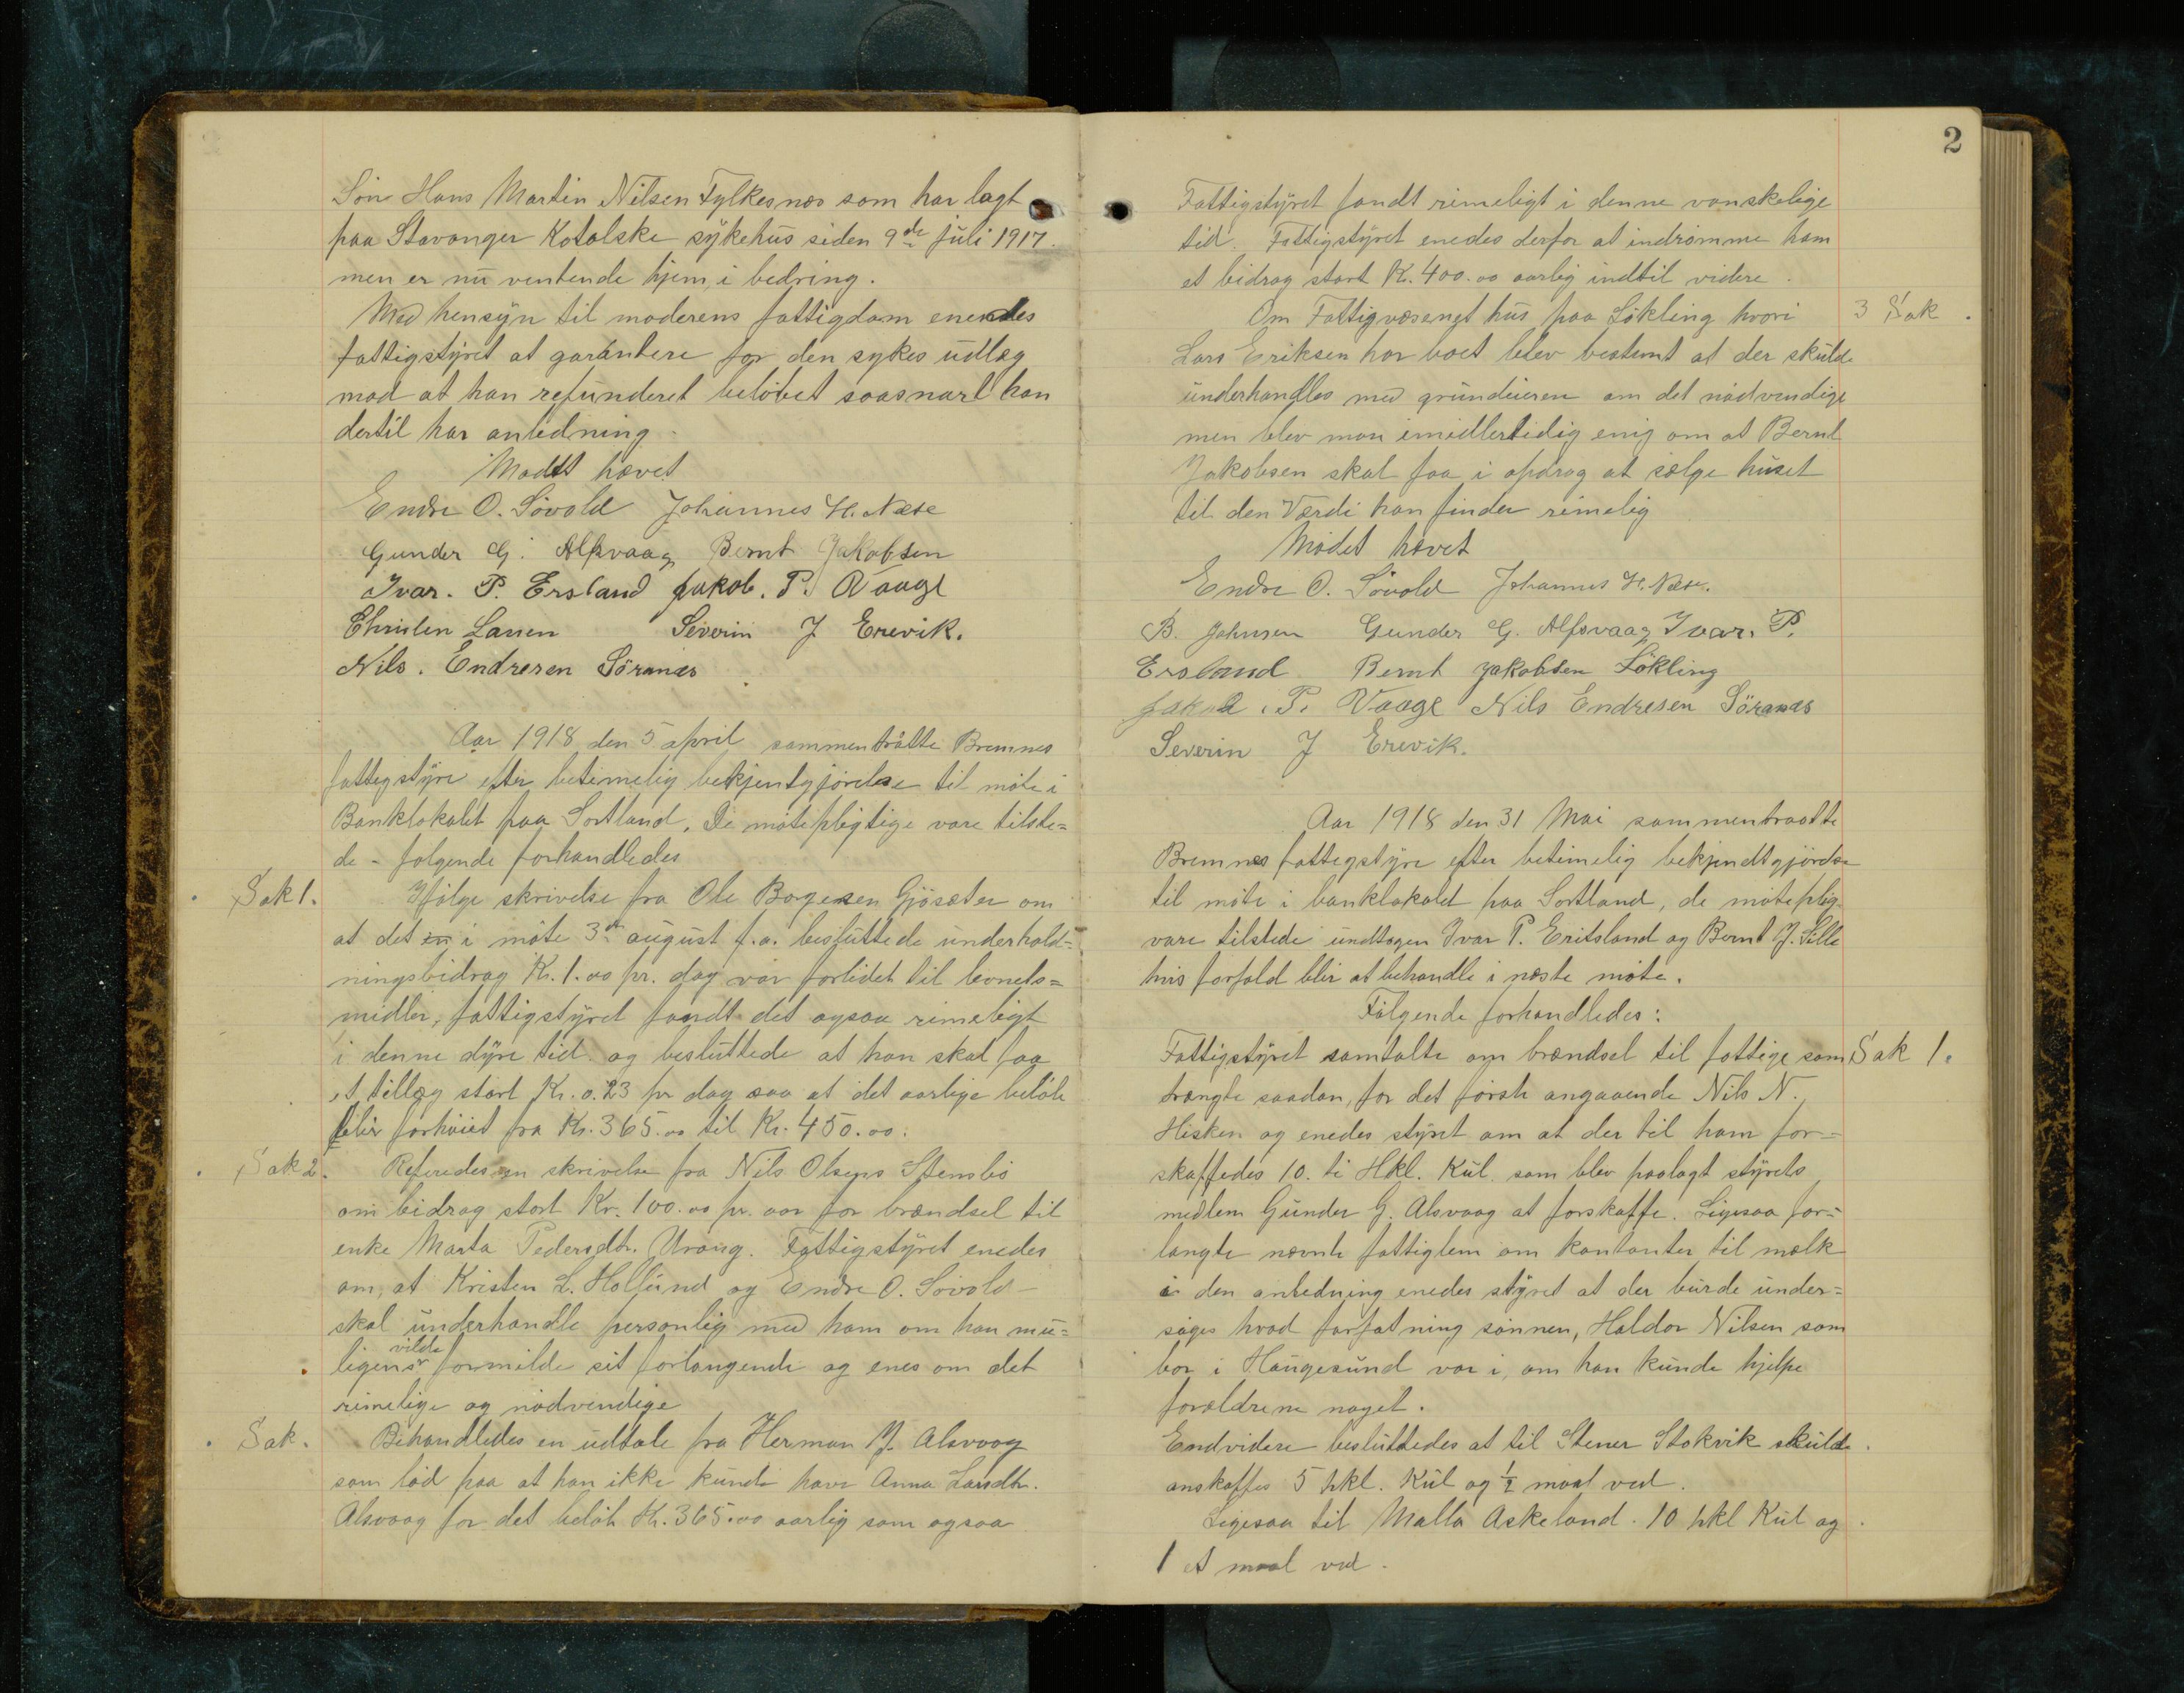 Sön Hans Martin Nilsen Fylkesnes som har lagt
paa Stavanger Katolske sykehus siden 9de juli 1917.
men er nu ventende hjem, i bedring.
Med hensyn til moderens fattigdom enendes
fattigstyret at garantere for den sykes udlæg
mod at han refunderet belöbet saasnart han
dertil har anledning
Mödtt hævet
Endre O. Sövold Johannes H. Næse
Gunder G. Alfsvaag Bernt Jakobsen
Ivar. P. Ersland Jakob. P. Vaage
Christen Larsen Severin J Erevik.
Nils. Endresen Söranes
Aar 1918 den 5 april sammenträtte Bremnes
fattigstyre efter betimelig bekjentgjörelse til möte i
Banklokalet paa Sortland. De mötepligtige vare tilste=
de - fölgende forhandledes
Sak 1. Ifölge skrivelse fra Ole Bogesen Gjösæter om
at det en i möte 3de august f.a. besluttede underhold=
ningsbidrag Kr. 1.00 pr. dag var forlidet til levnets=
midler, fattigstyret fandt det ogsaa rimeligt
i denne dyre tid og besluttede at han skal faa
et tillæg stort Kr. 0.23 pr dag saa at det aarlige belöb
blir forhöiet fra Kr. 365.00 til Kr. 450.00.
Sak 2. Referedes en skrivelse fra Nils Olsens Stensbö
om bidrag stort Kr. 100.00 pr. aar for brændsel til
enke Marta Pedersdtr. Urang. Fattigstyret enedes
om, at Kristen L. Hollund og Endre O. Sövold
skal underhandle personlig med ham om han mu=
vilde
ligens formilde sit forlangende og enes om det
rimelige og nödvendige
Sak. Behandledes en udtale fra Herman J. Alsvaag
som löd paa at han ikke kunde have Anna Larsdtr.
Alsvaag for det belöb Kr. 365.00 aarlig som ogsaa
2
Fattigstyret fandt rimeligt i denne vanskelige
tid. Fattigstyret enedes derfor at indrömme ham
et bidrag stort Kr. 400.00 aarlig indtil videre.
Om Fattigvæsenet hus paa Lökling hvori 3 Sak.
Lars Eriksen har boet blev bestemt at der skulde
underhandles med grundeieren om det nödvendige
men blev man imidlertidig enig om at Bernt
Jakobsen skal faa i opdrag at sælge huset
til den Værdi han finder rimelig
Mödet hævet
Endre O. Sövold Johannes H. Næse.
B. Johnsen Gunder G. Alfsvaag Ivar. P.
Ersland Bernt Jakobsen Lökling
Jakob. P. Vaage Nils Endresen Söranes
Severin J Erevik.
Aar 1918 den 31 Mai sammentraatte
Bremnes fattigstyre efter betimelig bekjendtgjörelse
til möte i banklokalet paa Sortland, de mötepleg-
vare tilstede undtagen Ivar P. Eritsland og Bernt J. Lille
hvis forfald blir at behandle i næste möte.
Fölgende forhandledes:
Fattigstyret samtalte om brændsel til fattige som Sak 1.
trængte saadan, for det förste angaaende Nils N.
Hisken og enedes styret om at der til ham for=
skaffedes 10. ti Hkl. Kul som blev paalagt styrets
medlem Gunder G. Alsvaag at forskaffe. Ligesaa for=
langte nævnte fattiglem om kontanter til mælk
i den anledning enedes styret at der burde under=
söges hvad forfatning sönnen, Haldor Nilsen som
bor i Haugesund var i, om han kunde hjelpe
forældrene noget.
Endvidere besluttedes at til Stener Stokvik skulde
anskaffes 5 hkl. Kul og 1/2 maal ved.
Ligesaa til Malla Askeland. 10 hkl Kul og
1 et maal ved.